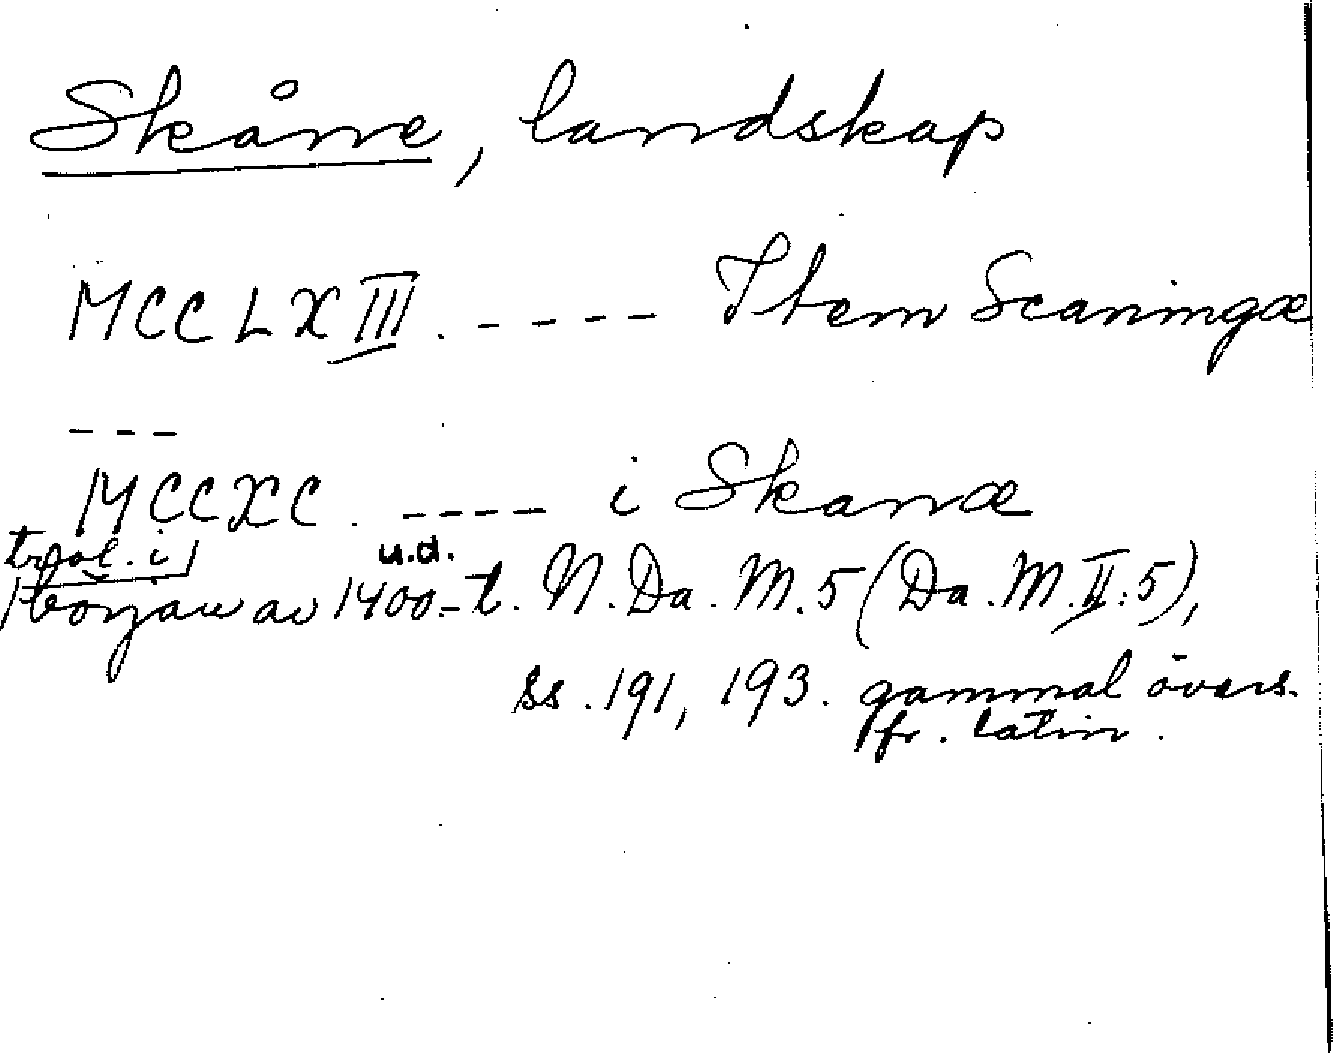 Skåne, landskap
MCCLXIII. ----- Item Scaningæ
---
MCCXC. ---- i Skanæ
trol. i u.d.
början av 1400-t. N. Da. M. 5 (Da. M. II:5),
ss. 191, 193. gammal övers.
fr. latin.